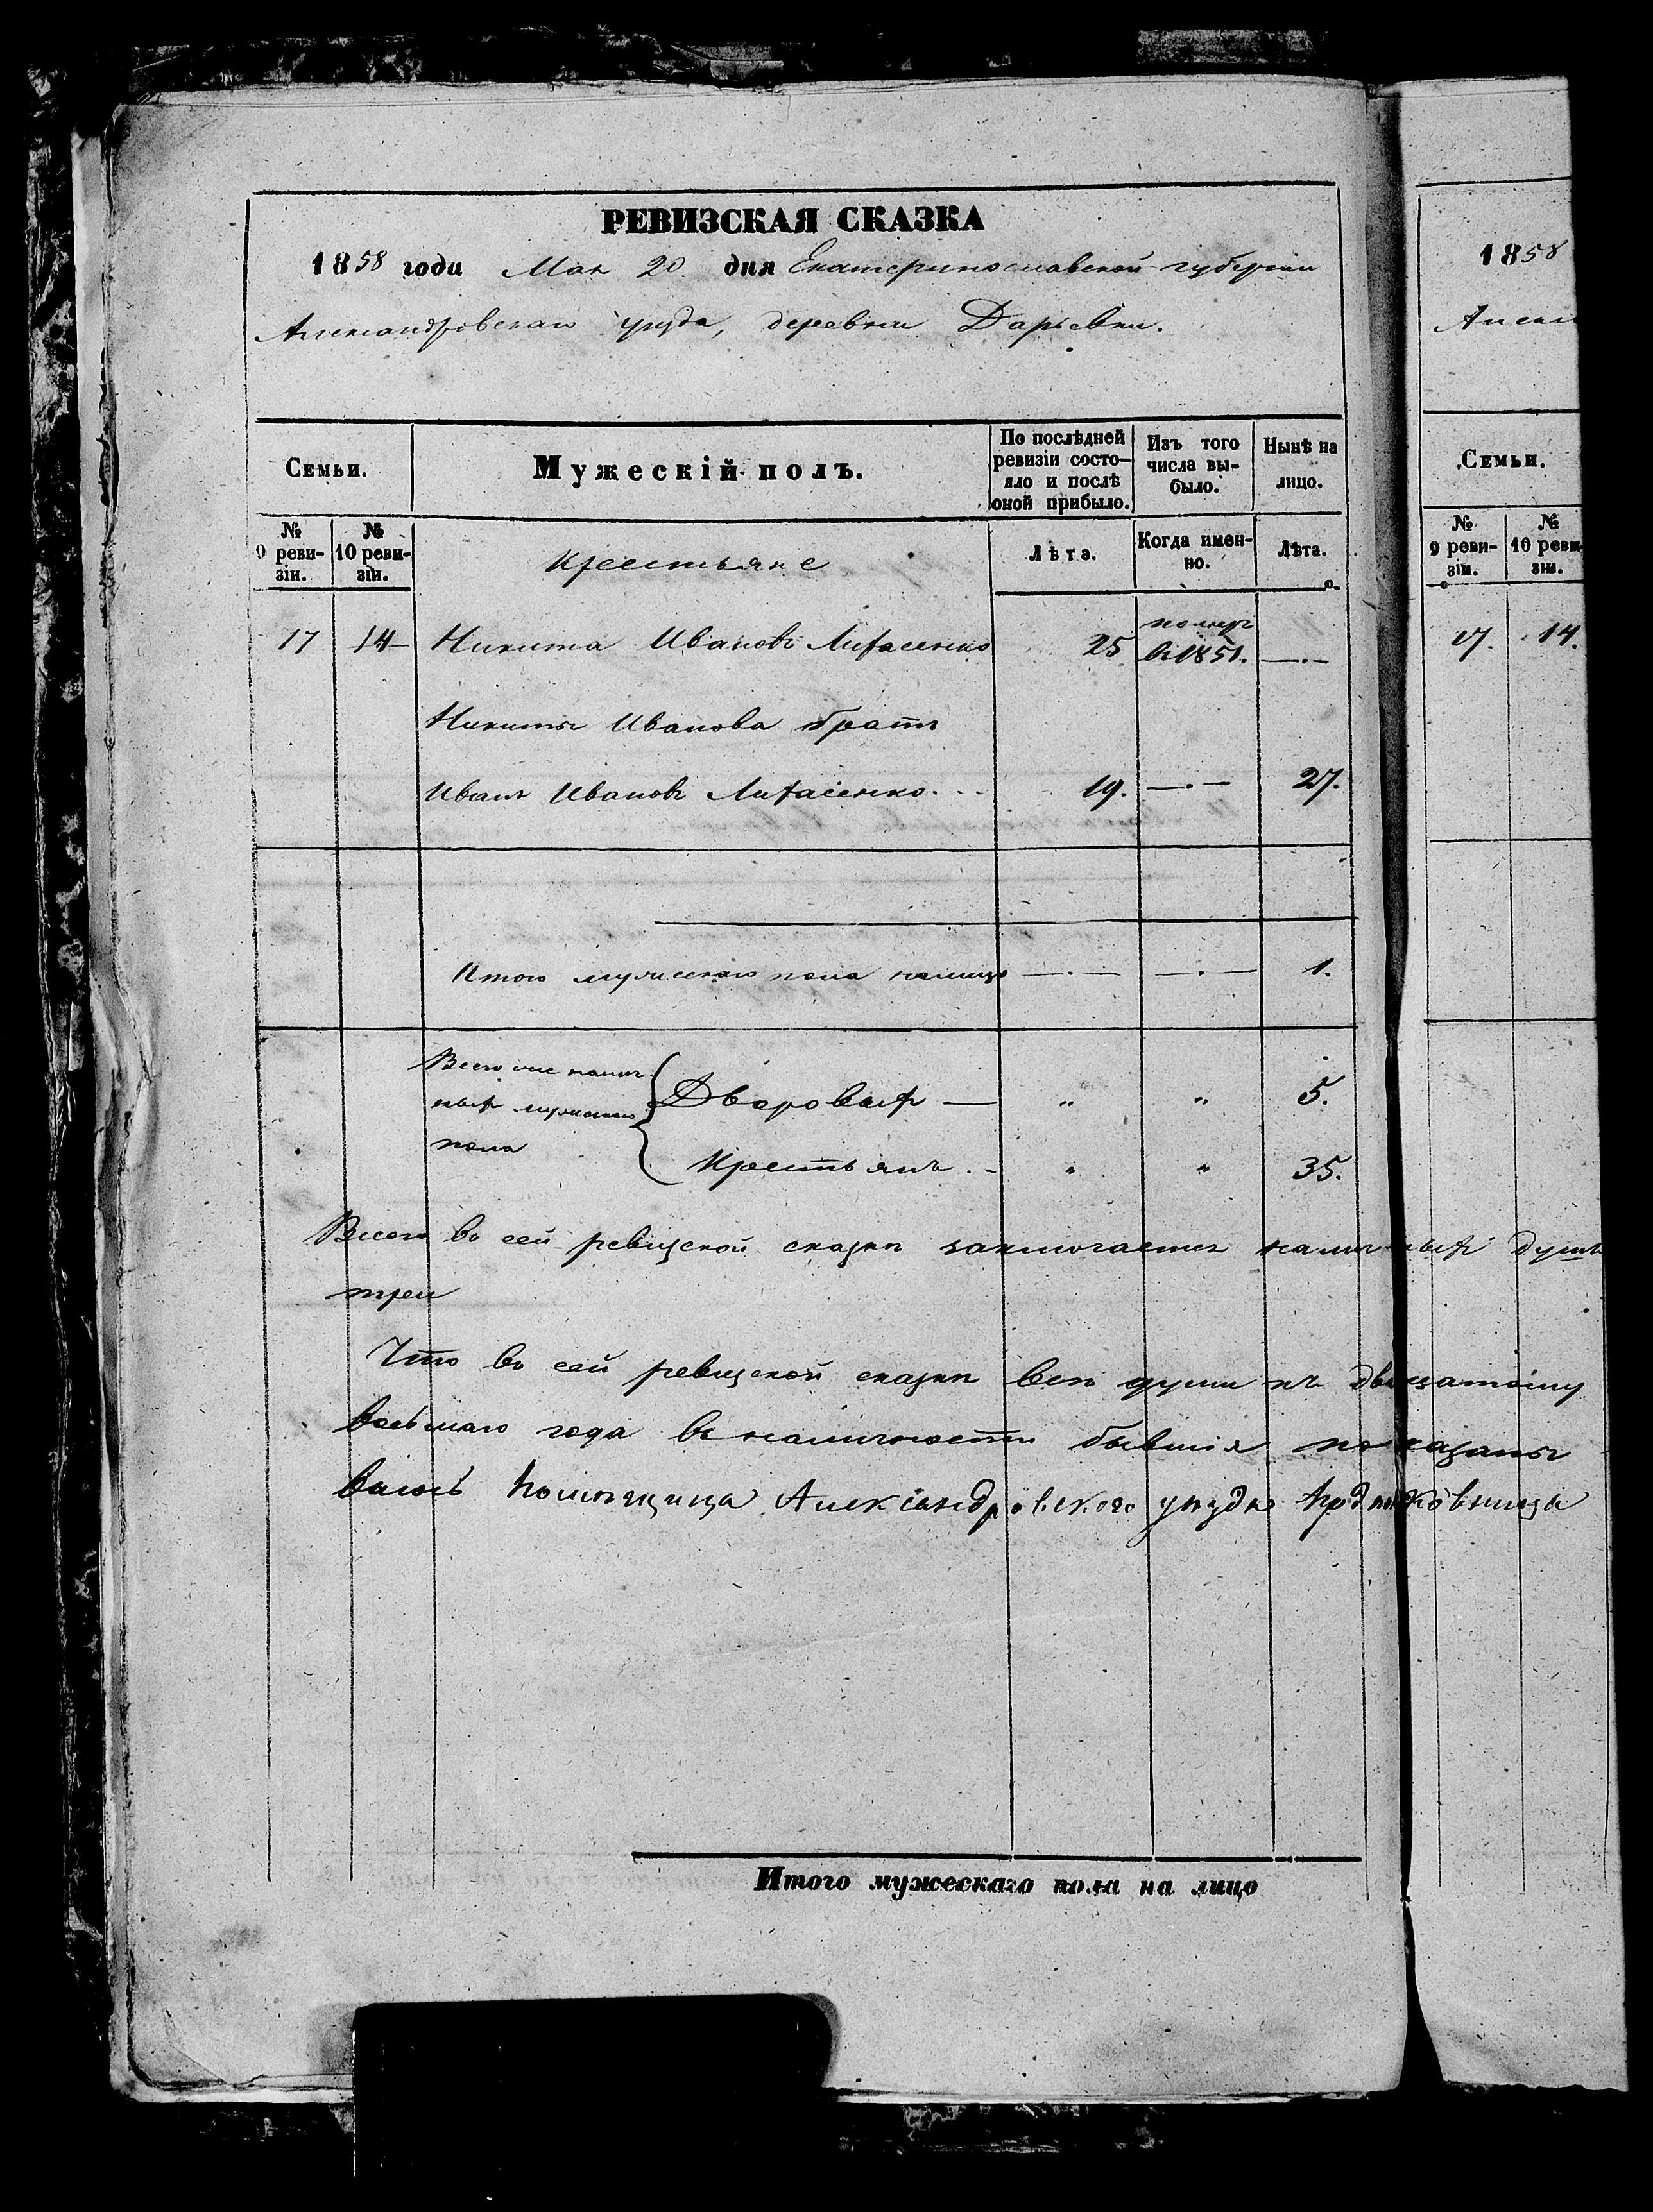 РЕВИЗСКАЯ СКАЗКА
1858 года Мая 20 дня Екатеринославской губерніи
Александровскаго уѣзда, деревни Дарьевки.
Семьи.
Мужескій полъ.
По послѣдней ревизіи состо-
яло и послѣ оной прибыло.
Изъ того числа вы-
было.
Нынѣ на лицо.
№ 9 реви-
зіи.
№ 10 реви-
зіи.
Крестьяне
Лѣта.
Когда имен-
но.
Лѣта.
17 14 Никита Ивановъ Лихасенко 25 померъ въ 1851. —.—
Никиты Иванова братъ
Иванъ Ивановъ Лихасенко... 19. —.— 27.
Итого мужескаго пола налицо —.— —.— 1.
Всего налич-
ныхъ мужескаго
пола
Дворовыхъ — " " 5.
Крестьянъ . - " " 35.
Всего въ сей ревизской сказкѣ заключается наличныхъ душъ
три
Что въ сей ревизской сказкѣ всѣ души къ двадцатому
восьмаго года въ наличности бывшія показаны
помѣщица Александровского уѣзда подполковница
Итого мужескаго пола на лицо
1858
Алекс
Семьи.
№ 9 реви-
зіи.
№ 10 реви-
зіи.
17. 14.